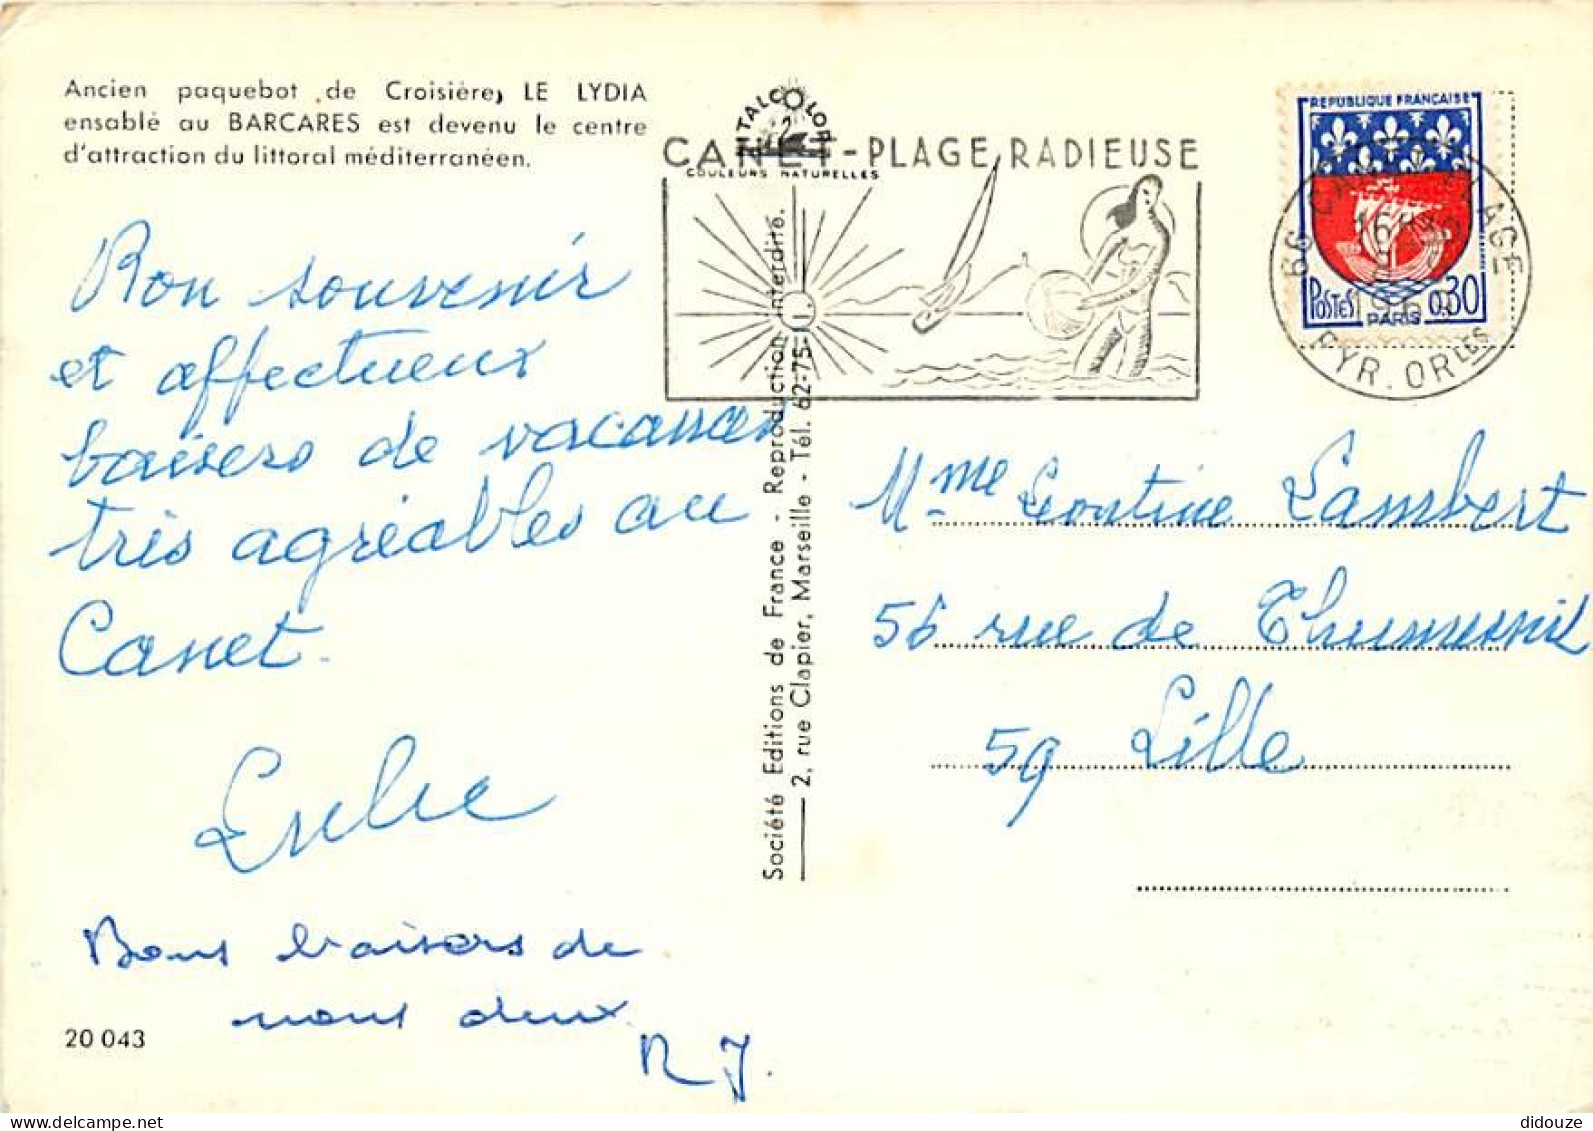 Ancien paquebot de Croisière, LE LYDIA
ensablé au BARCARES est devenu le centre
d'attraction du littoral méditerranéen.
Bon souvenir
et affectueux
baisers de vacances
très agréables au
Canet.
Bons baisers de
nous deux
R J.
20 043
ITALCOLOR
COULEURS NATURELLES
Société Editions de France - Reproduction interdite.
2, rue Clapier, Marseille - Tél. 62-75-11.
CANET-PLAGE RADIEUSE
REPUBLIQUE FRANÇAISE
POSTES 0,30
PARIS
66 CANET PLAGE
16H
PYR. ORLES
Mme Léontine Lambert
56 rue de Thumesnil
59 Lille
delcampe.net
didouze